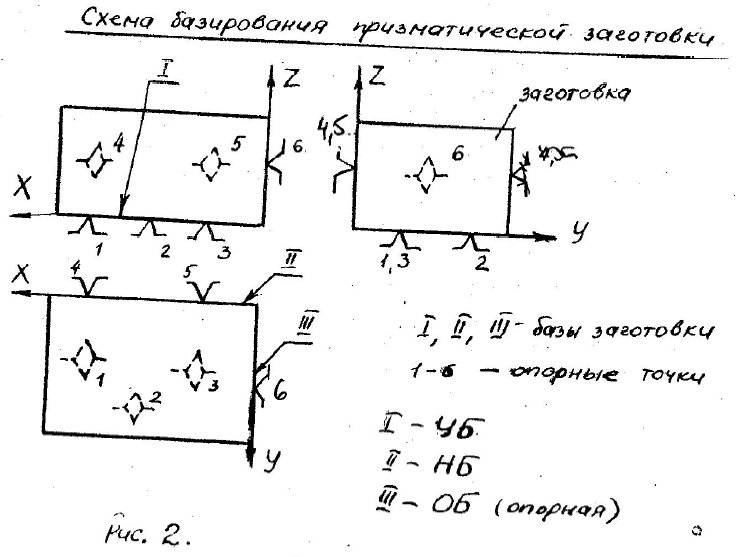 Схема базирования призматической заготовки
I
Z
Z
4
5
6
4,5
6
заготовка
X
1
2
3
1,3
2
У
X
4
5
II
III
1
2
3
6
У
I, II, III - базы заготовки
1-6 — опорные точки
I - УБ
II - НБ
III - ОБ (опорная)
Рис. 2.